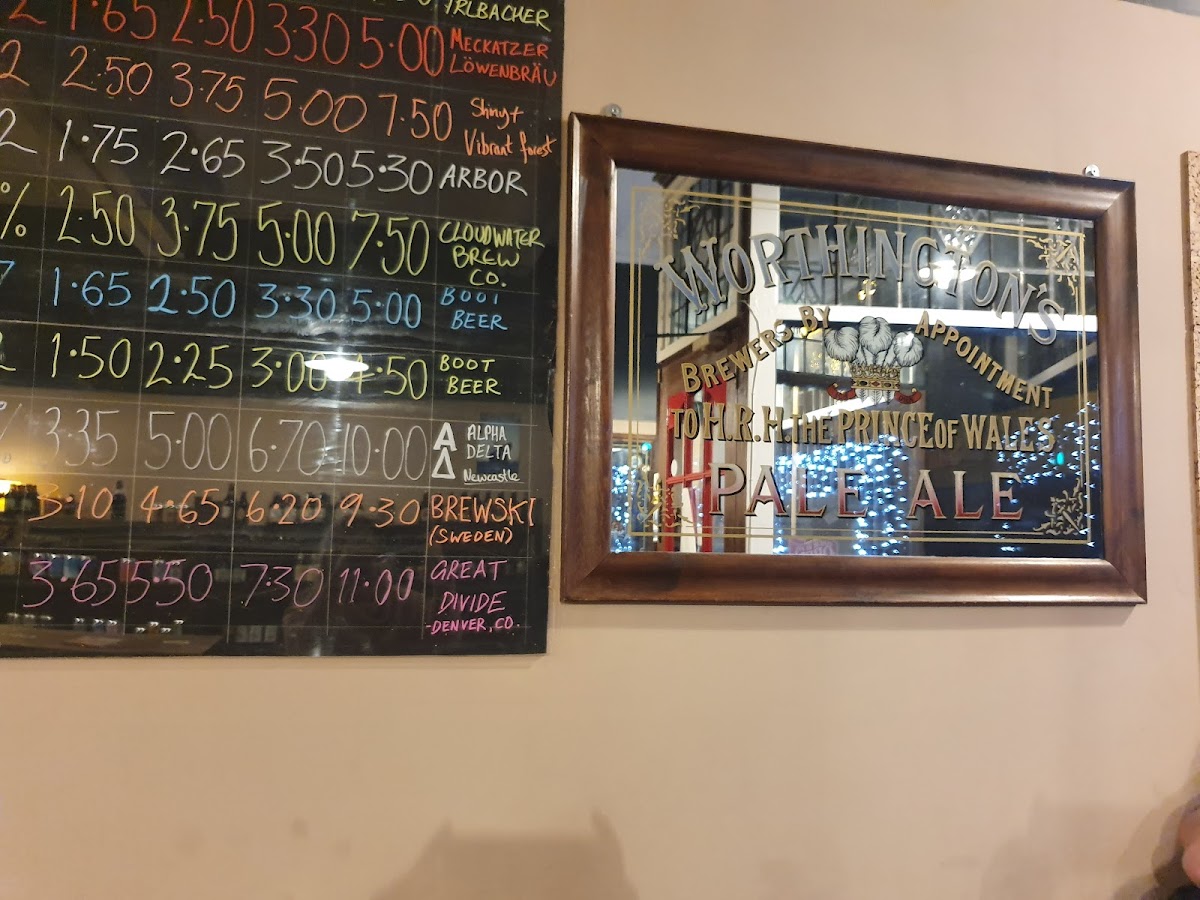 IRLBACHER
2 1.65 2.50 3.30 5.00 MECKATZER
LÖWENBRÄU
2 2.50 3.75 5.00 7.50 Shiny +
Vibrant forest
2 1.75 2.65 3.50 5.30 ARBOR
% 2.50 3.75 5.00 7.50 CLOUDWATER
BREW
CO.
7 1.65 2.50 3.30 5.00 BOOT
BEER
2 1.50 2.25 3.00 4.50 BOOT
BEER
% 3.35 5.00 6.70 10.00 ALPHA
DELTA
Newcastle
3.10 4.65 6.20 9.30 BREWSKI
(SWEDEN)
3.65 5.50 7.30 11.00 GREAT
DIVIDE
-DENVER, CO.
WORTHINGTON'S
BREWERS BY APPOINTMENT
TO H.R.H. THE PRINCE OF WALES
PALE ALE